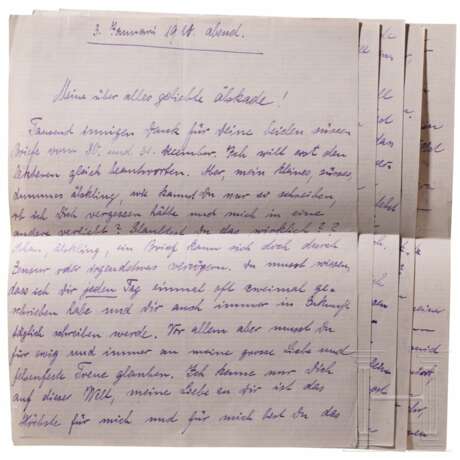 3. Januari 19 abend.
Meine über alles geliebte älskade!
Tausend innigen Dank für Deine beiden süssen
Briefe vom 30. und 31. December. Ich will erst den
letzteren gleich beantworten. Aber mein kleines, süsses,
dummes älskling, wie kannst Du nur so schreiben
ob ich Dich vergessen hätte und mich in eine
andere verliebt? Glaubtest Du das wirklich?
älskling, ein Brief kann sich doch durch
Zensur oder irgendetwas verzögern. Du musst wissen,
dass ich dir jeden Tag einmal oft zweimal ge-
schrieben habe und Dir auch immer in Zukunft
täglich schreiben werde. Vor allem aber musst Du
für ewig und immer an meine grosse Liebe und
felsenfeste Treue glauben. Ich kenne nur Dich
auf dieser Welt, meine Liebe zu dir ist das
Höchste für mich und für mich bist Du das